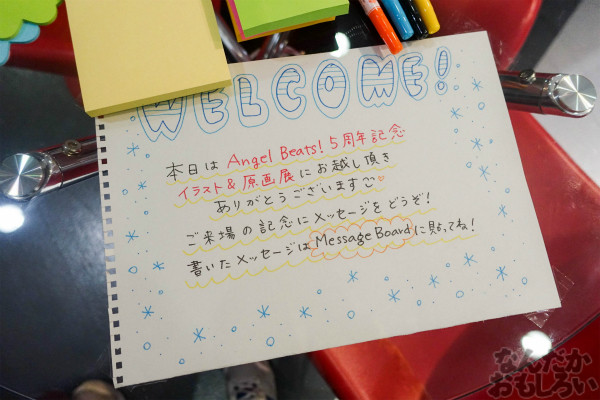 WELCOME!
本日は Angel Beats! 5周年記念
イラスト&原画展にお越し頂き
ありがとうございます
ご来場の記念にメッセージをどうぞ!
書いたメッセージはMessage Boardに貼ってね!
なんだか
おもしろい